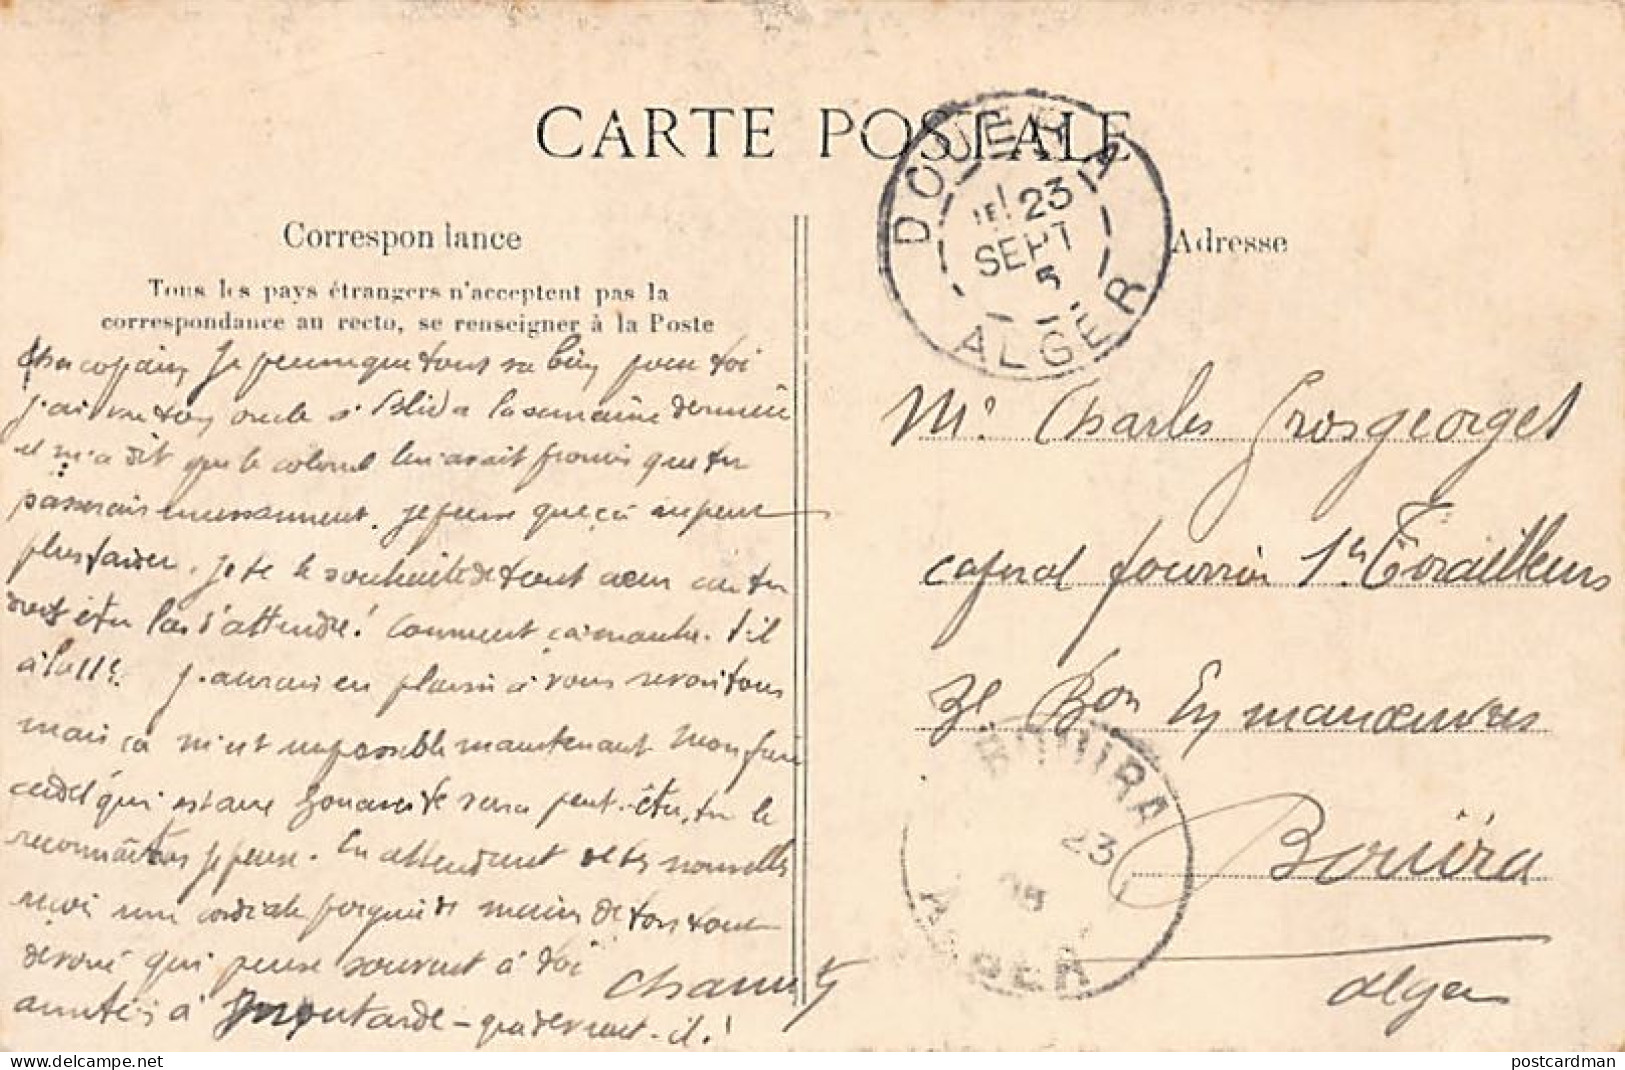 CARTE POSTALE
DOUERA
1E/23
SEPT
5
ALGER
Correspondance
Adresse
Tous les pays étrangers n'acceptent pas la
correspondance au recto, se renseigner à la Poste
Cher copain, Je pense que tout va bien pour toi
j'ai vu ton oncle à Blida la semaine dernière
et m'a dit que le colonel lui avait promis que tu
passerais incessamment. je pense que ça ne peut
plus tarder. Je te le souhaite de tout cœur car tu
dois être las d'attendre! Comment ça marche-t-il
à la J'aurais eu plaisir à vous revoir tous
mais ça m'est impossible maintenant Mon frère
cadet qui est aux zouaves te verra peut-être, tu le
reconnaîtras je pense. En attendant de tes nouvelles
reçois une cordiale poignée de mains de ton tout
dévoué qui pense souvent à toi
amitiés à Moutarde - que devient-il!
Mr Charles Grosgeorget
caporal fourrier 1er Tirailleurs
3e Bon En manœuvres
Bouïra
Alger
BOUIRA
23
05
ALGER
Thanks for visiting
postcardman